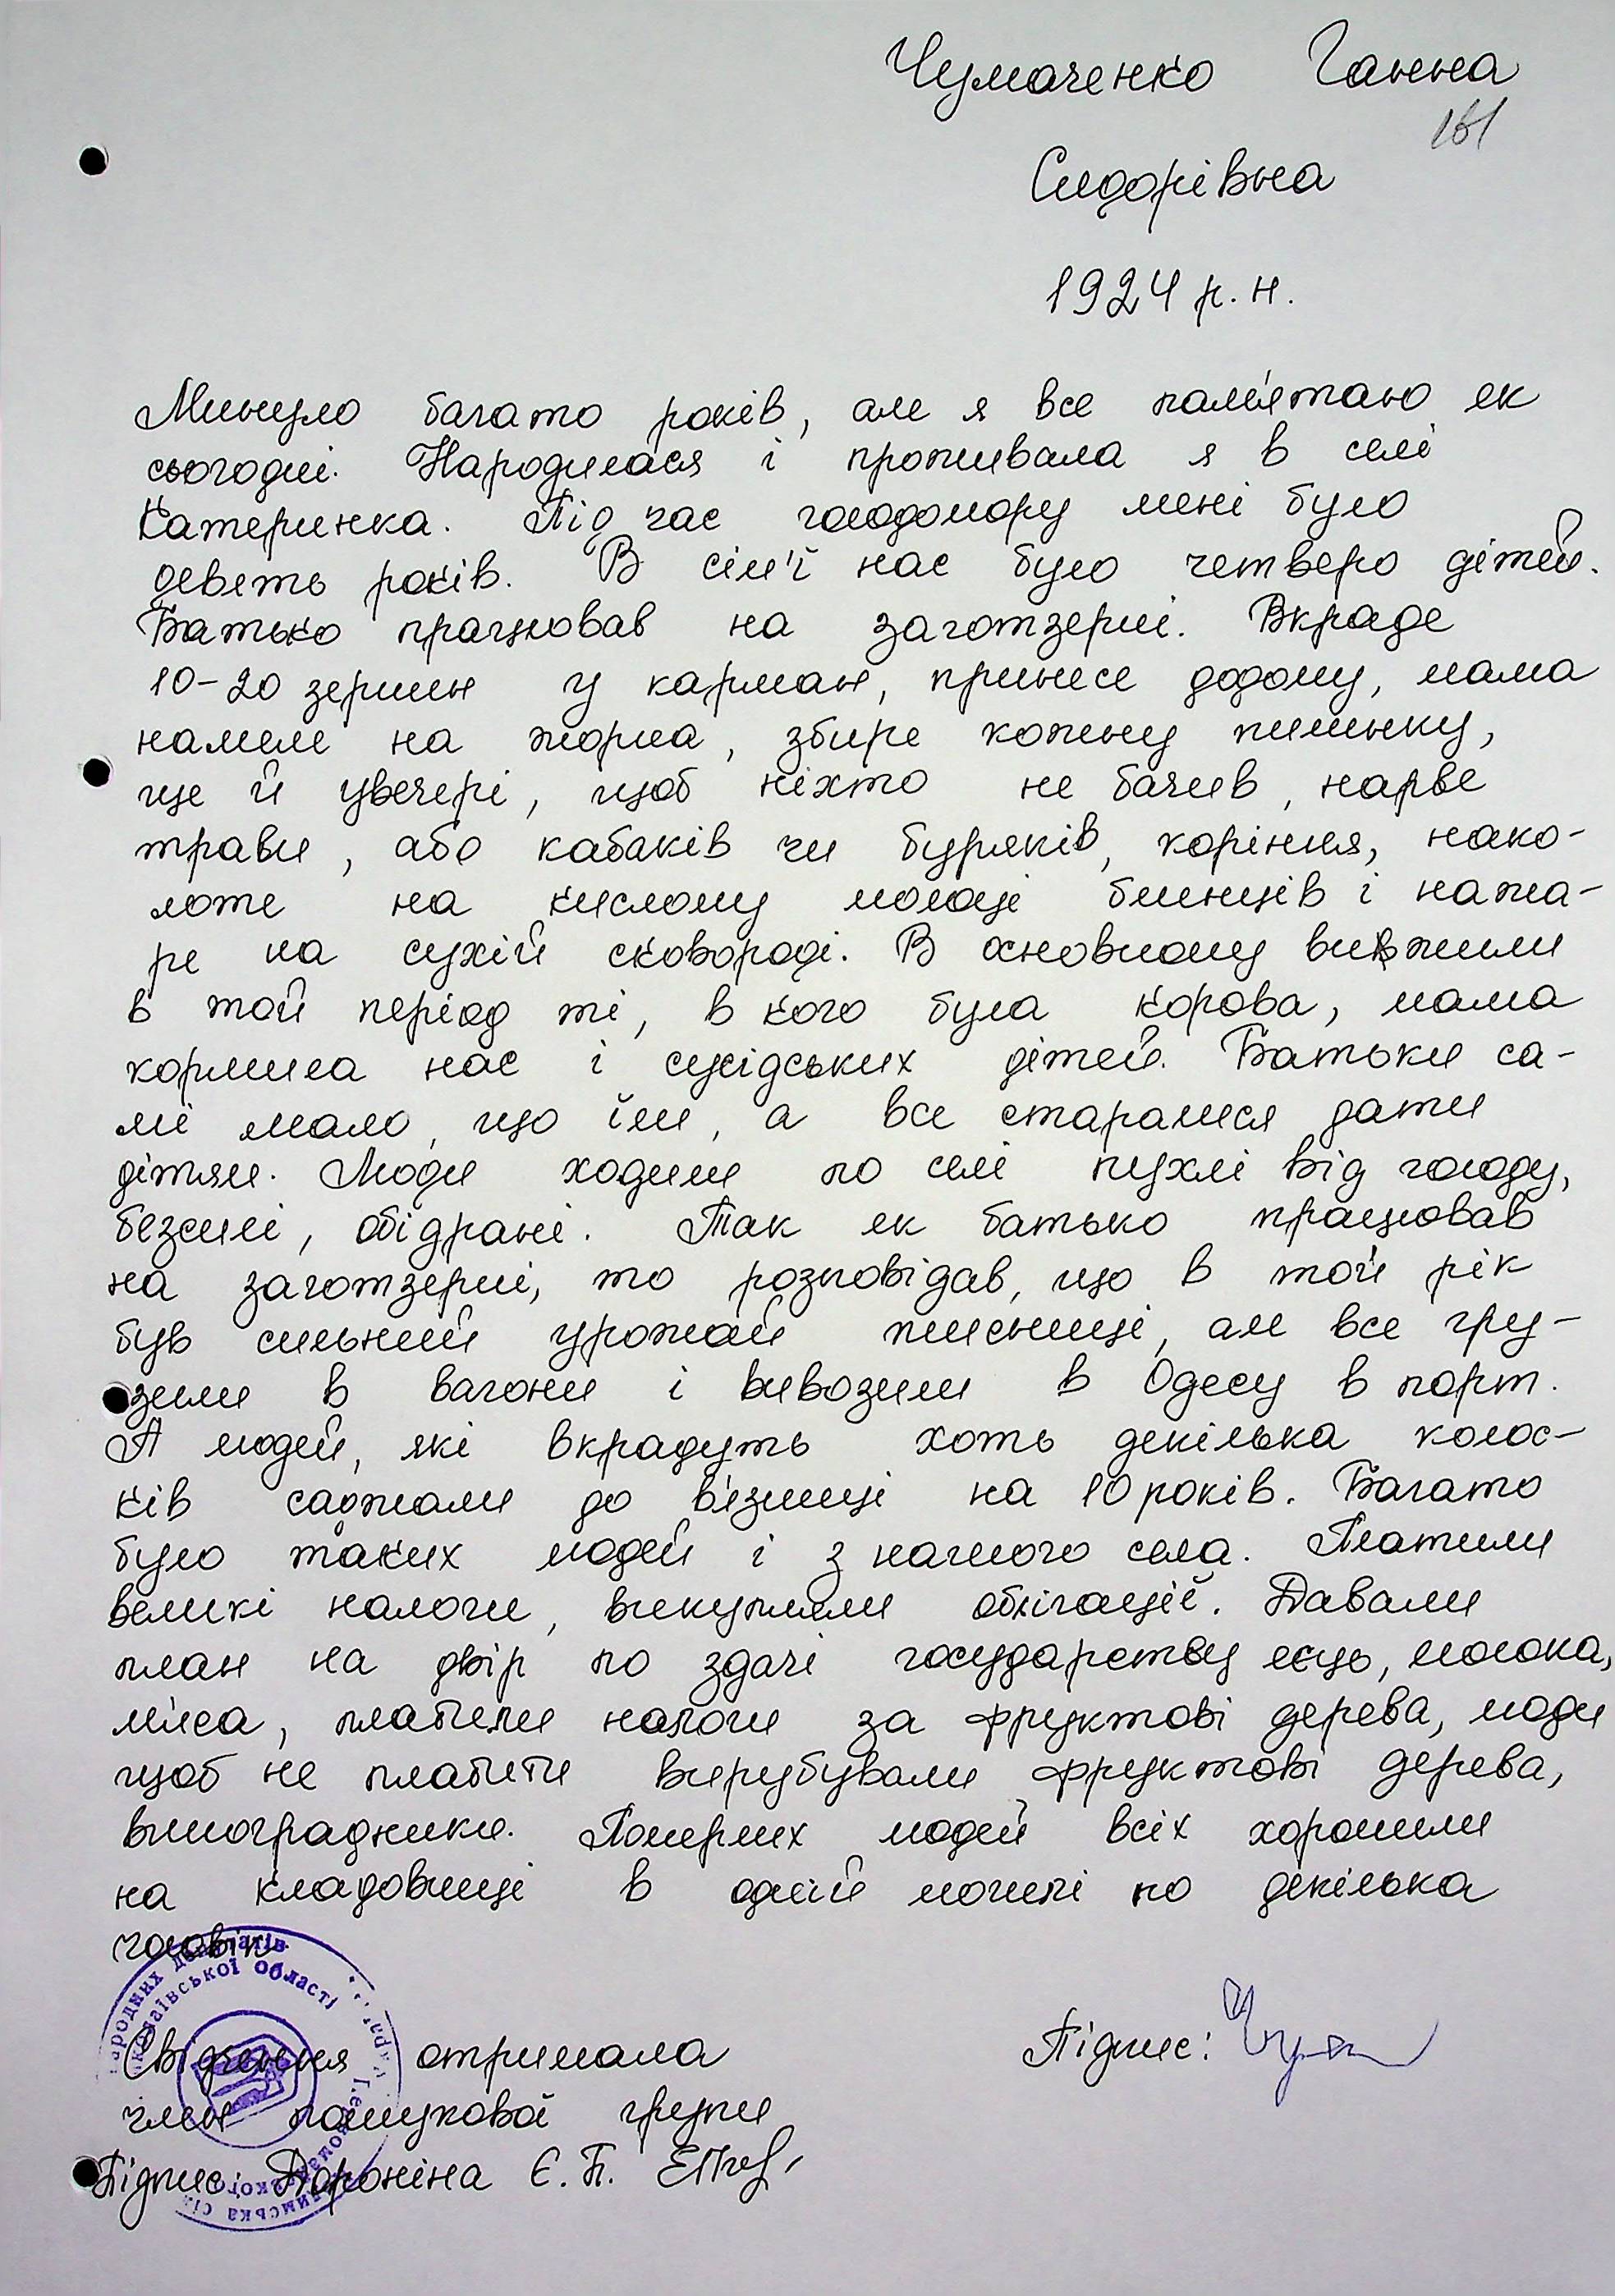 Чумаченко Ганна
161
Сидорівна
1924 р. н.
Минуло багато років, але я все пам'ятаю як
сьогодні. Народилася і проживала я в селі
Катеринка. Під час голодомору мені було
девять років. В сім'ї нас було четверо дітей.
Батько працював на заготзерні. Вкраде
10-20 зернин у карман, принесе додому, мама
намеле на жорна, збире кожну пилинку,
ще й увечері, щоб ніхто не бачив, нарве
трави, або кабаків чи буряків, коріння, нако-
лоте на кислому молоці блинців і нажа-
ре на сухій сковороді. В основному вижили
в той період ті, в кого була корова, мама
кормила нас і сусідських дітей. Батьки са-
мі мало, що їли, а все старалися дати
дітям. Люди ходили по селі пухлі від голоду,
безсилі, обідрані. Так як батько працював
на заготзерні, то розповідав, що в той рік
був сильний урожай пшениці, але все гру-
зили в вагони і вивозили в Одесу в порт.
А людей, які вкрадуть хоть декілька колос-
ків саджали до вязниці на 10 років. Багато
було таких людей і з нашого села. Платили
великі налоги, викупляли облігації. Давали
план на двір по здачі государству яєць, молока,
м'яса, платили налоги за фруктові дерева, люди
щоб не платити вирубували фруктові дерева,
виноградники. Померлих людей всіх хоронили
на кладовищі в одній могилі по декілька
чоловік
Свідчення отримала
член пошукової групи
Підпис: Дороніна Є. П.
Підпис:
народних депутатів
Миколаївської області